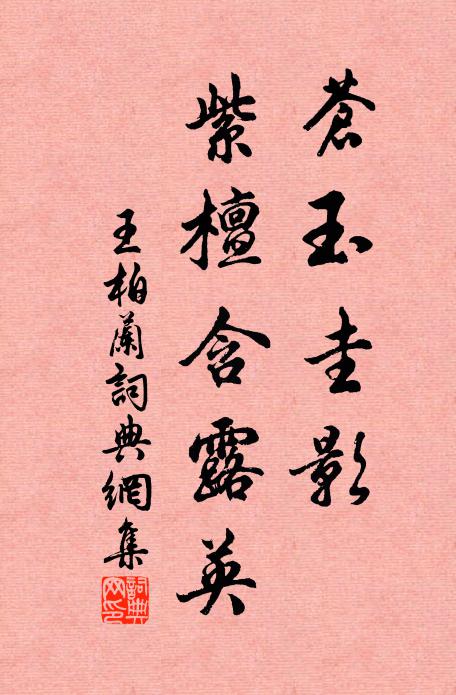 蒼玉圭影
紫檀含露英
王柏蘭詞典網集
詞典網印